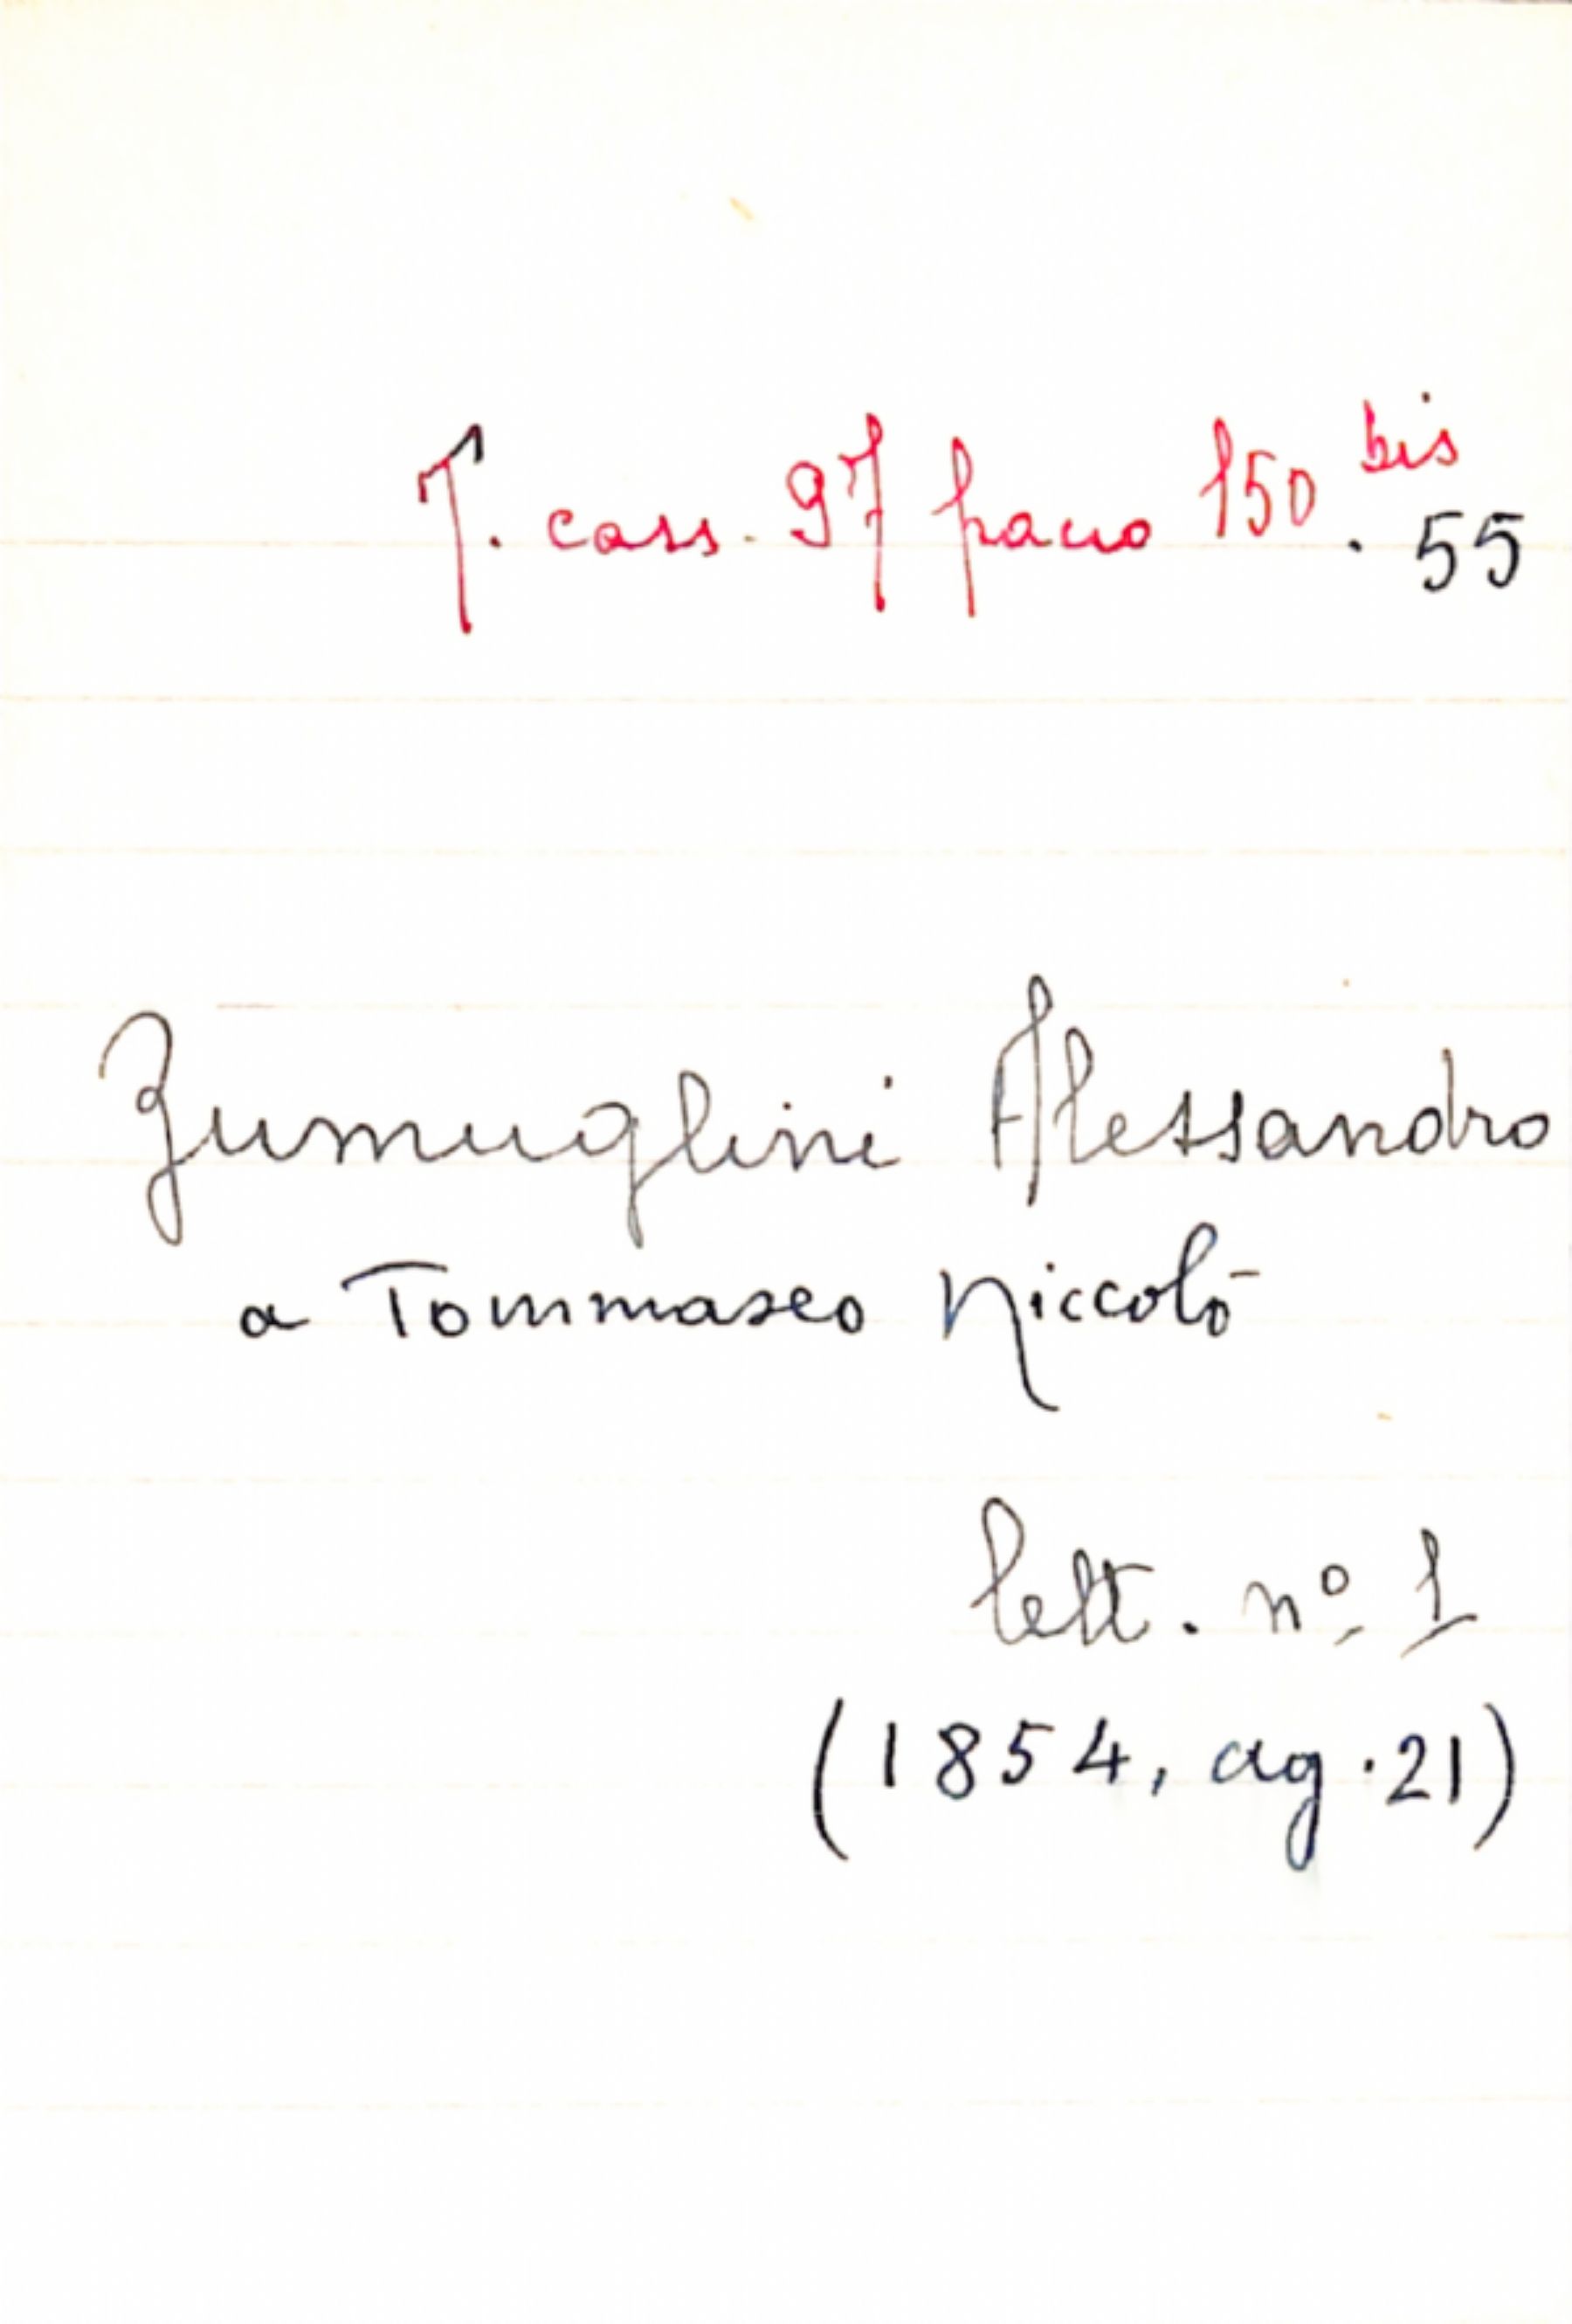 T. cass. 97 pacco 150 bis. 55
Zumuglini Alessandro
a Tommaseo Niccolò
lett. nº 1
(1854, ag. 21)